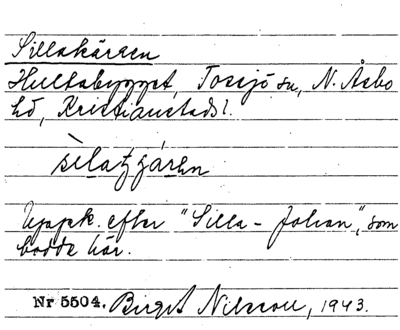 Sillakärren
Hultabygget, Tossjö sn, N. Åsbo
hd, Kristianstads l.
Uppk. efter "Silla-Johan", som
bodde här.
Nr 5504. Birgit Nilsson, 1943.